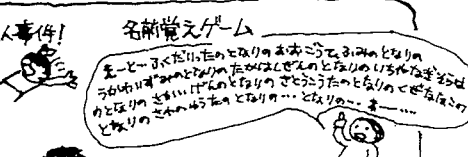 人事件!
名前覚えゲーム
えーと…ふくだりったのとなりのおおごうてるふみのとなりの
うかわりずみのとなりのたかはしぜんのとなりのいちやなぎそうは
のとなりのさかいげんのとなりのさとうこうたのとなりの
となりのさわのゆうたのとなりの…となりの…あー……